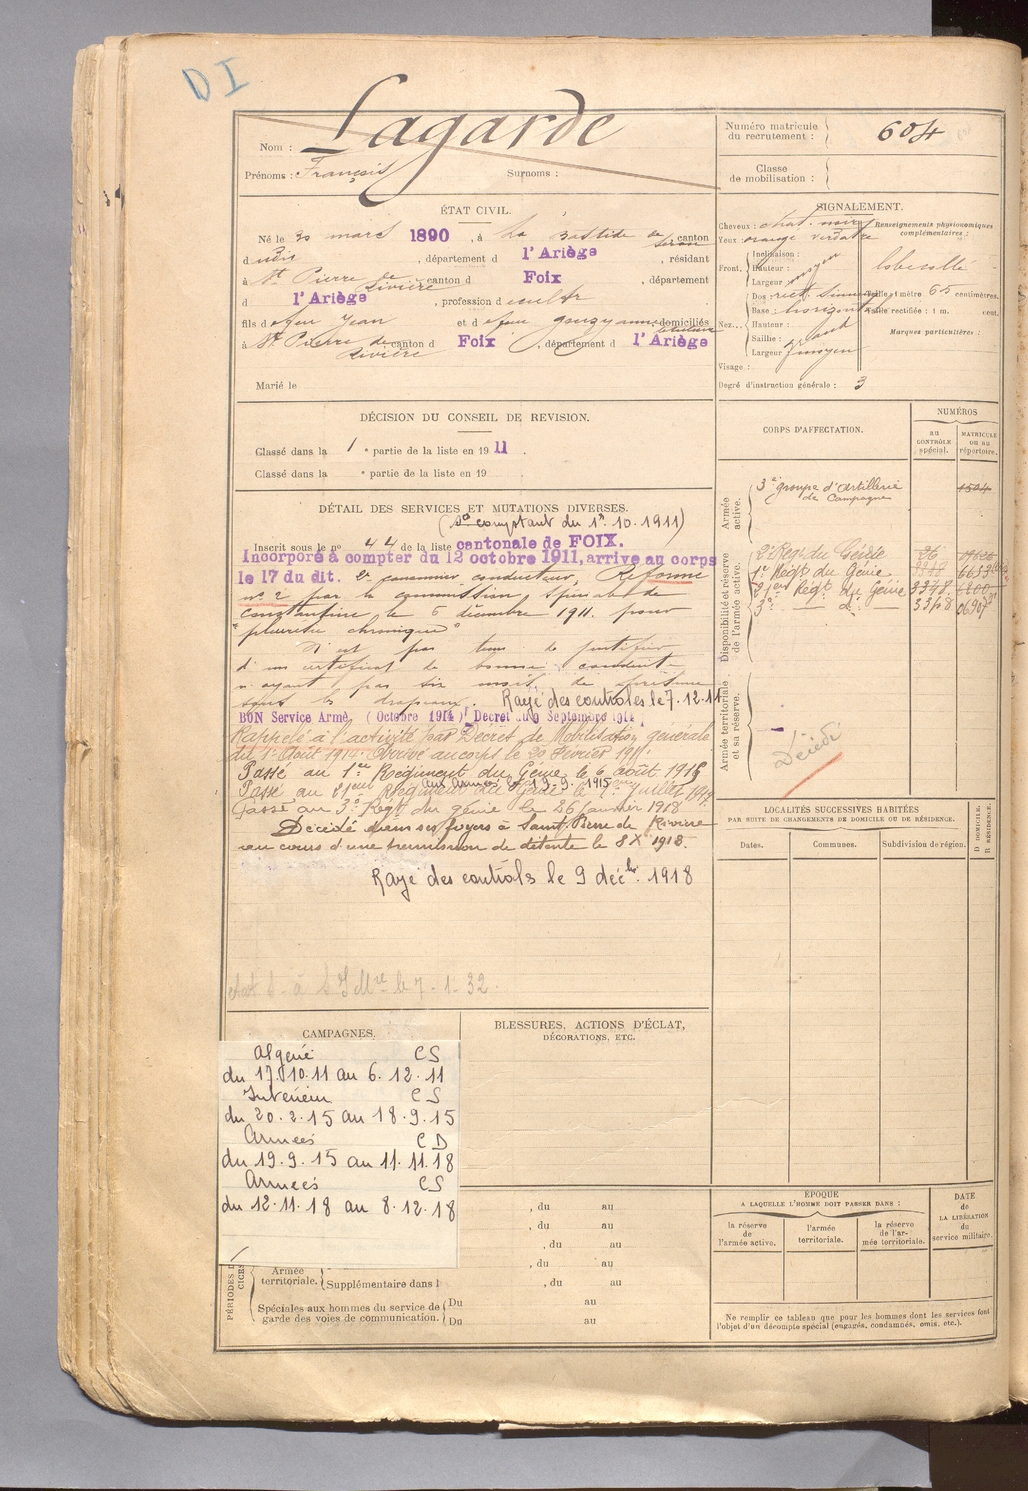 DI
Nom : Lagarde
Prénoms : François Surnoms :
Numéro matricule du recrutement : 604
Classe de mobilisation :
ÉTAT CIVIL.
Né le 30 mars 1890, à La Bastide de Sérou, canton
d udit, département d l'Ariège, résidant
à St Pierre de Rivière, canton d Foix, département
d l'Ariège, profession de cultr
fils de feu Jean et de feu domiciliés
à St Pierre de Rivière canton d Foix, département d l'Ariège
Marié le
SIGNALEMENT.
Cheveux : chat. noirs
Yeux orange verdatre
Front, Inclinaison :
Hauteur : moyen
Largeur
Nez... Dos : rect.
Base : horizontal
Hauteur :
Saillie :
Largeur moyen
Visage :
Degré d'instruction générale : 3
Renseignements physionomiques complémentaires :
Taille : 1 mètre 65 centimètres.
Taille rectifiée : 1 m. cent.
Marques particulières :
DÉCISION DU CONSEIL DE REVISION.
Classé dans la 1 e partie de la liste en 1911
Classé dans la e partie de la liste en 19
DÉTAIL DES SERVICES ET MUTATIONS DIVERSES.
comptant du 1er. 10. 1911)
Inscrit sous le no 44 de la liste cantonale de FOIX.
Incorporé à compter du 12 octobre 1911, arrive au corps
le 17 du dit. 2e canonnier conducteur, Réformé
no 2 par la commission spéciale de
Constantine, le 6 décembre 1911. pour
"pleurésie chronique"
N'est pas tenu de justifier
d'un certificat de bonne conduite
n'ayant pas six mois de présence
sous les drapeaux. Rayé des controles le 7.12.11
BON Service Armé (Octobre 1914) Décret du 9 Septembre 1914
Rappelé à l'activité par Décret de Mobilisation générale
du 1er Août 1914. Arrivé au corps le 20 Février 1915.
Passé au 1er Régiment du Génie le 6 août 1915
aux Armées le 19.9.1915
Passé au 21eme Régiment du Génie le 1er Juillet 1917
Passé au 3e Regt du génie le 26 janvier 1918
Décédé dans ses foyers à Saint Pierre de Rivière
au cours d'une permission de détente le 8 Xbre 1918.
Rayé des controls le 9 décbre. 1918
le 7.1.32.
CORPS D'AFFECTATION.
NUMÉROS
AU CONTRÔLE spécial.
MATRICULE ou au répertoire.
Armée active.
3e groupe d'artillerie de Campagne 1504
Disponibilité et réserve de l'armée active.
2e Regt. du Génie 26
1er Régt du Génie 3348
21eme Régt. du Génie 3348.
3e — d° — 3348
Armée territoriale et sa réserve.
Décédé
LOCALITÉS SUCCESSIVES HABITÉES
PAR SUITE DE CHANGEMENTS DE DOMICILE OU DE RÉSIDENCE.
Dates. Communes. Subdivision de région. D DOMICILE. R RÉSIDENCE.
CAMPAGNES.
Algérie CS
du 17.10.11 au 6.12.11
Intérieur CS
du 20.2.15 au 18.9.15
Armées CD
du 19.9.15 au 11.11.18
Armées CS
du 12.11.18 au 8.12.18
BLESSURES, ACTIONS D'ÉCLAT,
DÉCORATIONS, ETC.
, du au
, du au
, du au
, du au
Armée territoriale. Supplémentaire dans l , du au
Spéciales aux hommes du service de garde des voies de communication. Du au
Du au
ÉPOQUE
A LAQUELLE L'HOMME DOIT PASSER DANS :
la réserve de l'armée active. l'armée territoriale. la réserve de l'armée territoriale.
DATE DE LA LIBÉRATION du service militaire.
Ne remplir ce tableau que pour les hommes dont les services font
l'objet d'un décompte spécial (engagés, condamnés, omis, etc.).